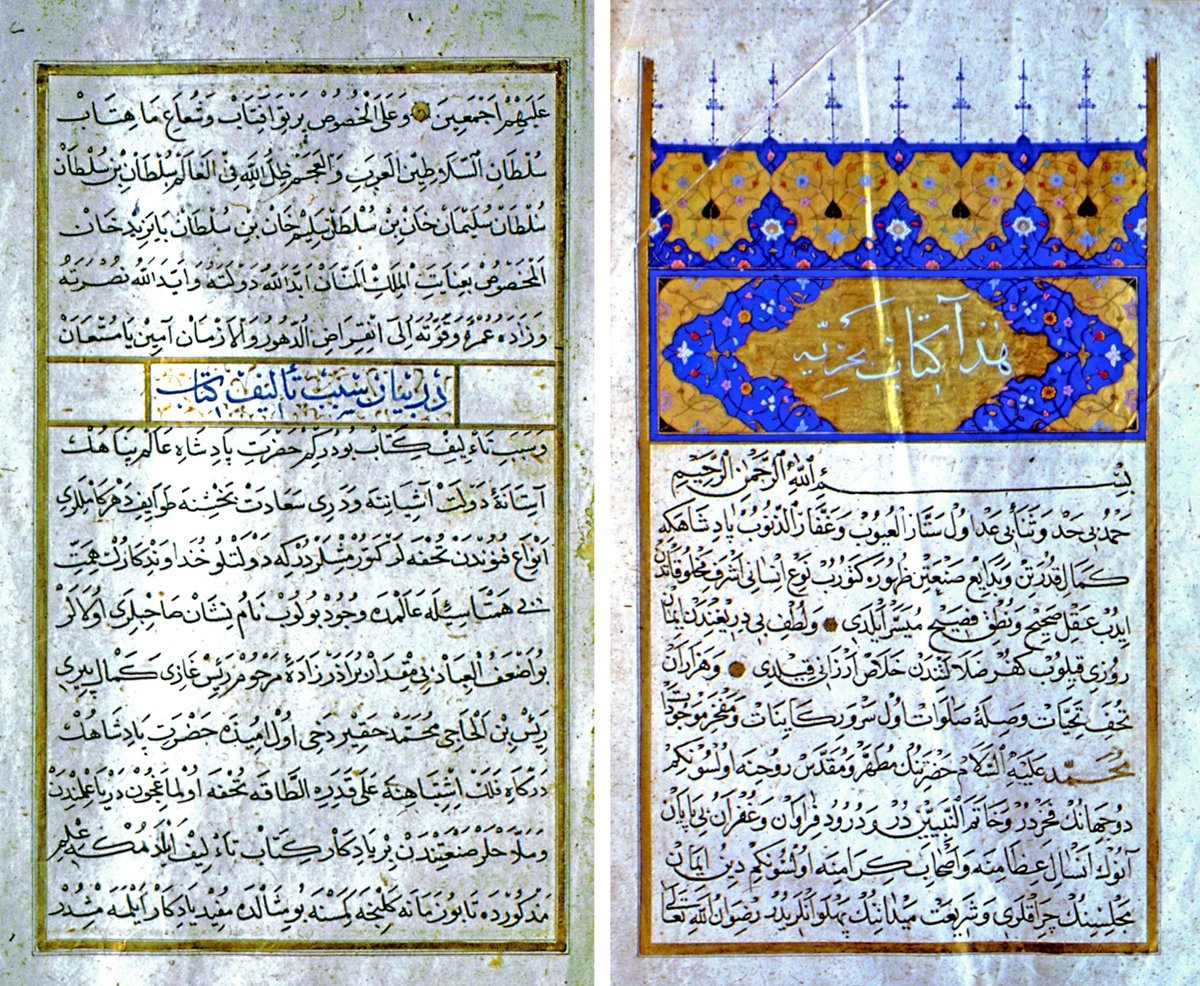 هذا كتاب بحريه
بسم الله الرحمن الرحيم
حمد بی حد و ثنای بی عد اول ستار العیوب و غفار الذنوب پادشاهکه
کمال قدرتن و بدایع صنعتین ظهوره کتورب نوع انسانی اشرف مخلوقاتدن
ایدب عقل صحیح و نطق فصیح میسر ایلدی و لطف بی دریغندن ایمان
روزی قیلوب کفر ضلالتندن خلاص ارزانی قیلدی و هزاران
تحف تحیات و صله صلوات اول سرور کاینات و مفخر موجودات
محمد علیه السلام حضرتنك مطهر و مقدس روحنه اولسونکم
دو جهانك فخردر و خاتم النبیین در و درود فراوان و غفران بی پایان
آنوك انسال عظامنه و اصحاب کرامنه اولسونکم دین ایمان
مجلسنك چراقلری و شریعت میدانینك پهلوانلریدر رضوان الله تعالی
علیهم اجمعین و علی الخصوص پرتو افتاب و شعاع ماهتاب
سلطان السلاطین العرب و العجم ظل الله فی العالم سلطان بن سلطان
سلطان سلیمان خان بن سلطان سلیم خان بن سلطان بایزید خان
المخصوص بعنایت الملك المنان ابد الله دولته و اید الله نصرته
و زاده عمره و قوته الی انقراض الدهور و الازمان آمین یا مستعان
در بیان سبب تألیف کتاب
و سبب تاءلیف کتاب بودرکم حضرت پادشاه عالم پناهك
آستانهٔ دولت آشیاننه و دری سعادت بخشنه طوایف دهر کاملری
انواع فنوندن تحفه لر کتورمشلردرکه دولتلو خداوندکارك همت
بی همتاسیله عالمده وجود بولوب نام نشان صاحبلری اولالر
بو اضعف العباد بی مقدار برادر زاده مرحوم رئیس غازی کمال پیری
رئیس بن الحاجی محمد حقیر دخی اول امیده حضرت پادشاهك
درکاه فلك اشتباهنه علی قدره الطاقه تحفه اولماغیچون دریا علمندن
و ملاحلر صنعتندن بر یادکار کتاب تاءلیف ایلدمکه علم
مذکورده تا بو زمانه کلینجه کمسنه بو مثالده مفید یادکار ایلمه مشدر